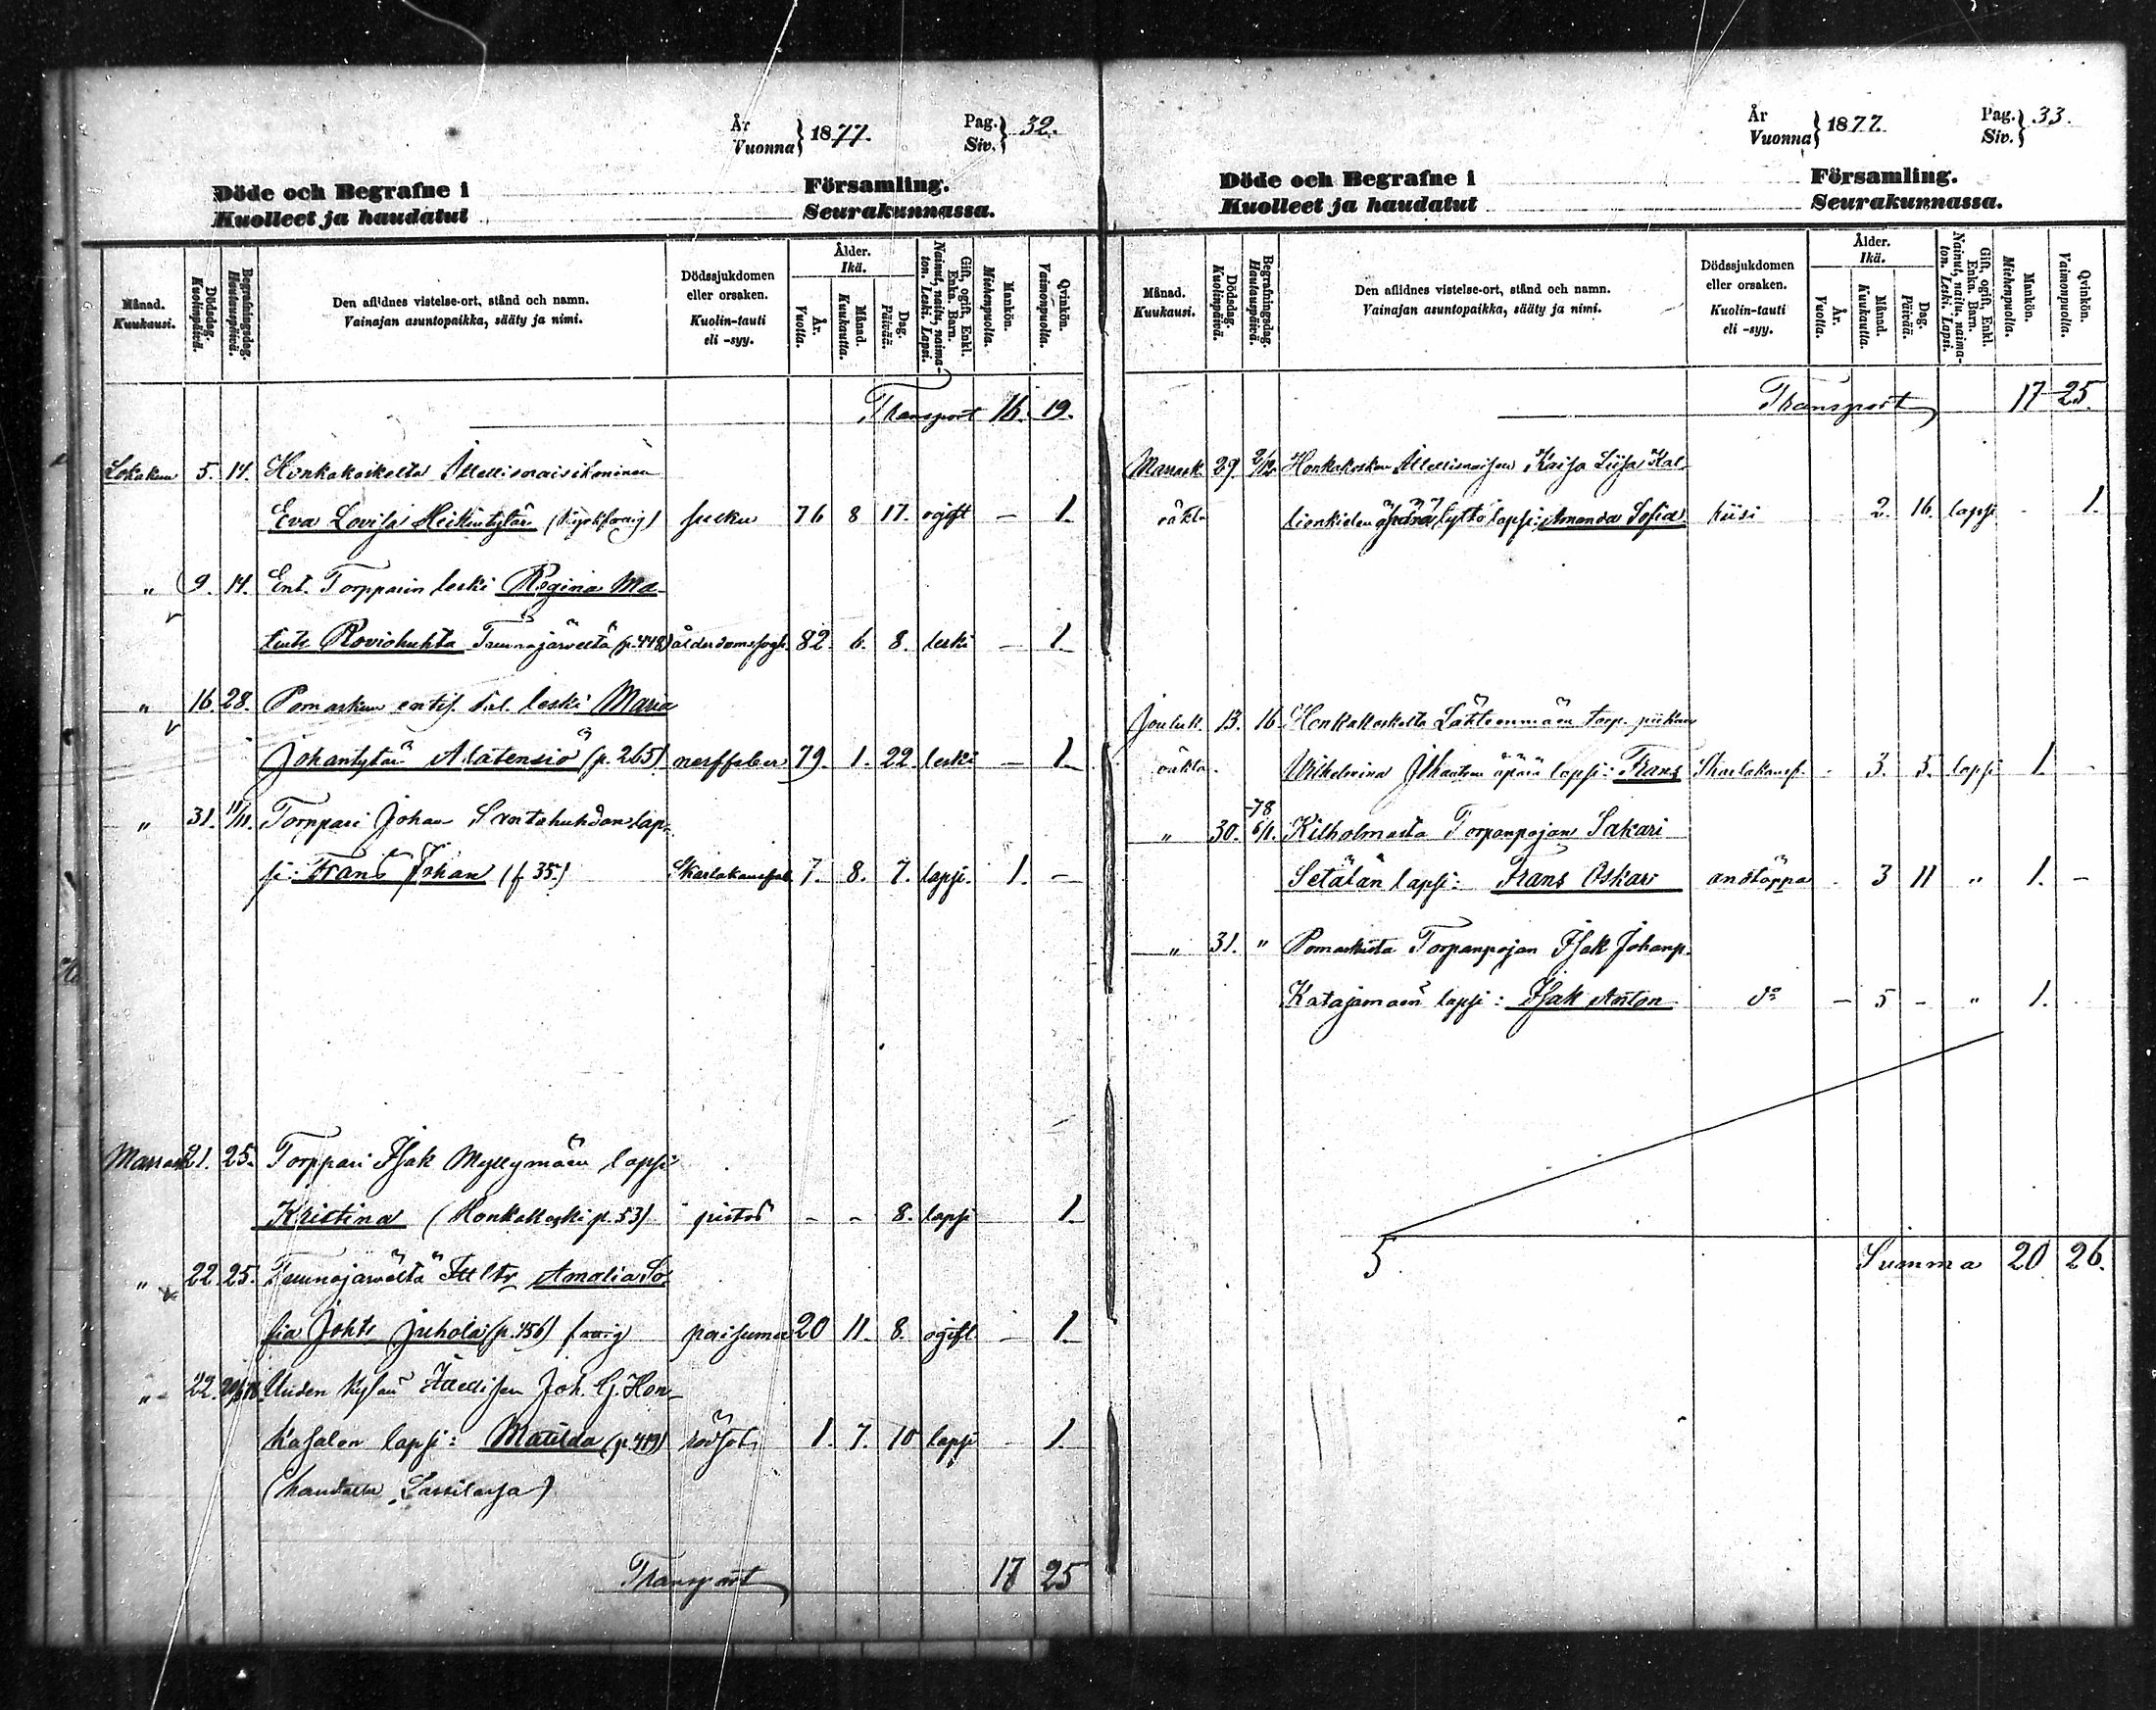 År
Vuonna } 1877.
Pag.
Siv. } 32.
Döde och Begrafne i Församling.
Kuolleet ja haudatut Seurakunnassa.
Månad. Kuukausi.
Dödsdag. Kuolinpäivä.
Begrafningsdag. Hautauspäivä.
Den aflidnes vistelse-ort, stånd och namn.
Vainajan asuntopaikka, sääty ja nimi.
Dödssjukdomen eller orsaken.
Kuolin-tauti eli -syy.
Ålder. Ikä.
År. Vuotta.
Månad. Kuukautta.
Dag. Päivää.
Gift, ogift, Enkl. Enka. Barn.
Nainut, naitu, naimaton. Leski. Lapsi.
Mankön. Miehenpuolia.
Qvinkön. Vaimonpuolia.
Transport 16. 19.
Lokakuu 5. 14. Honkakoskelta
Eva Lovisa Heikintytär 76 8 17. ogift — 1.
" 9. 14. Ent. Torpparin leski Regina Ma-
tints Roviohuhta (p. 448) 82. 6. 8. leski — 1.
" 16. 28. Pomarkun leski Maria
Johantytär Alatensiö (p. 265) nerffeber 79. 1. 22. leski — 1.
" 31. 11/11. Torppari Johan Santahuhdan lap-
si: Frans Johan (f. 35.) Skarlakansfeb. 7. 8. 7. lapsi. 1. —
Marrask. 21. 25. Torppari Isak Myllymäen lapsi
Kristina (Honkakoski p. 53) pistos - - 8. lapsi 1.
" 22. 25. Amalia So-
fia Johts Juhola (p. 456) 20 11. 8. ogift — 1.
" 22. Uuden kylän Joh. G. Hon-
kasalon lapsi: Matilda rödsot 1. 7. 10 lapsi — 1.
(haudattu Lassilassa)
Transport 17 25
År
Vuonna } 1877.
Pag.
Siv. } 33.
Döde och Begrafne i Församling.
Kuolleet ja haudatut Seurakunnassa.
Månad. Kuukausi.
Dödsdag. Kuolinpäivä.
Begrafningsdag. Hautauspäivä.
Den aflidnes vistelse-ort, stånd och namn.
Vainajan asuntopaikka, sääty ja nimi.
Dödssjukdomen eller orsaken.
Kuolin-tauti eli -syy.
Ålder. Ikä.
År. Vuotta.
Månad. Kuukautta.
Dag. Päivää.
Gift, ogift, Enkl. Enka. Barn.
Nainut, naitu, naimaton. Leski. Lapsi.
Mankön. Miehenpuolia.
Qvinkön. Vaimonpuolia.
Transport 17 25.
Marrask. 29. 2/12. Honkakosken Kaisa Liisa Kal-
lionkielen lapsi: Amanda Sofia 2. 16. lapsi 1.
Jouluk. 13. 16. Honkakoskelta Lähteenmäen torp. piikan
Wilhelmina äpärä lapsi: Frans Skarlakansf. 3. 5. lapsi 1. -
-78
" 30. 6/1. Kilholmasta Torpanpojan Sakari
Setälän lapsi: Frans Oskari andtäppa 3 11 " 1. -
" 31. " Pomarkusta Torpanpojan Isak Johanp.
Katajamäen lapsi: Isak Anton do — 5 - " 1.
5 Summa 20 26.